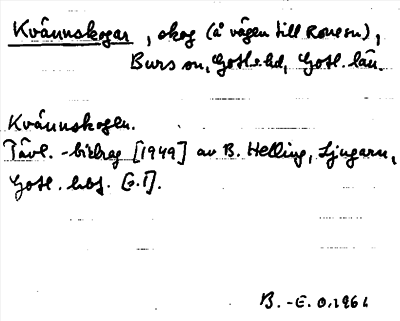 Kvännskogar, skog (å vägen till Ronesn),
Burs sn, Gotl. hd, Gotl. län.
Kvännskogen.
Tävl.-bidrag [1949] av B. Helling, Ljugarn,
Gotl. [G.T].
B.-E. O. 1961